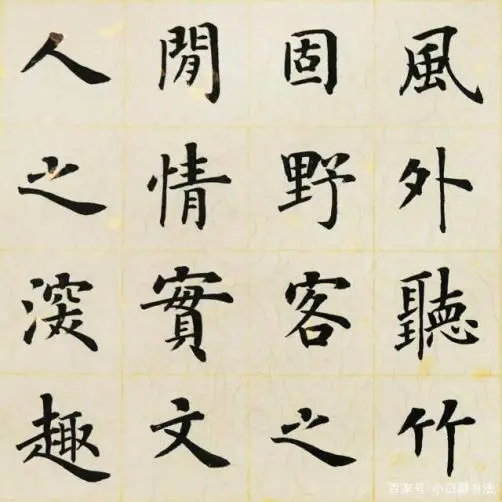 風外聽竹
固野客之
閒情實文
人之深趣
百家号/小白聊书法